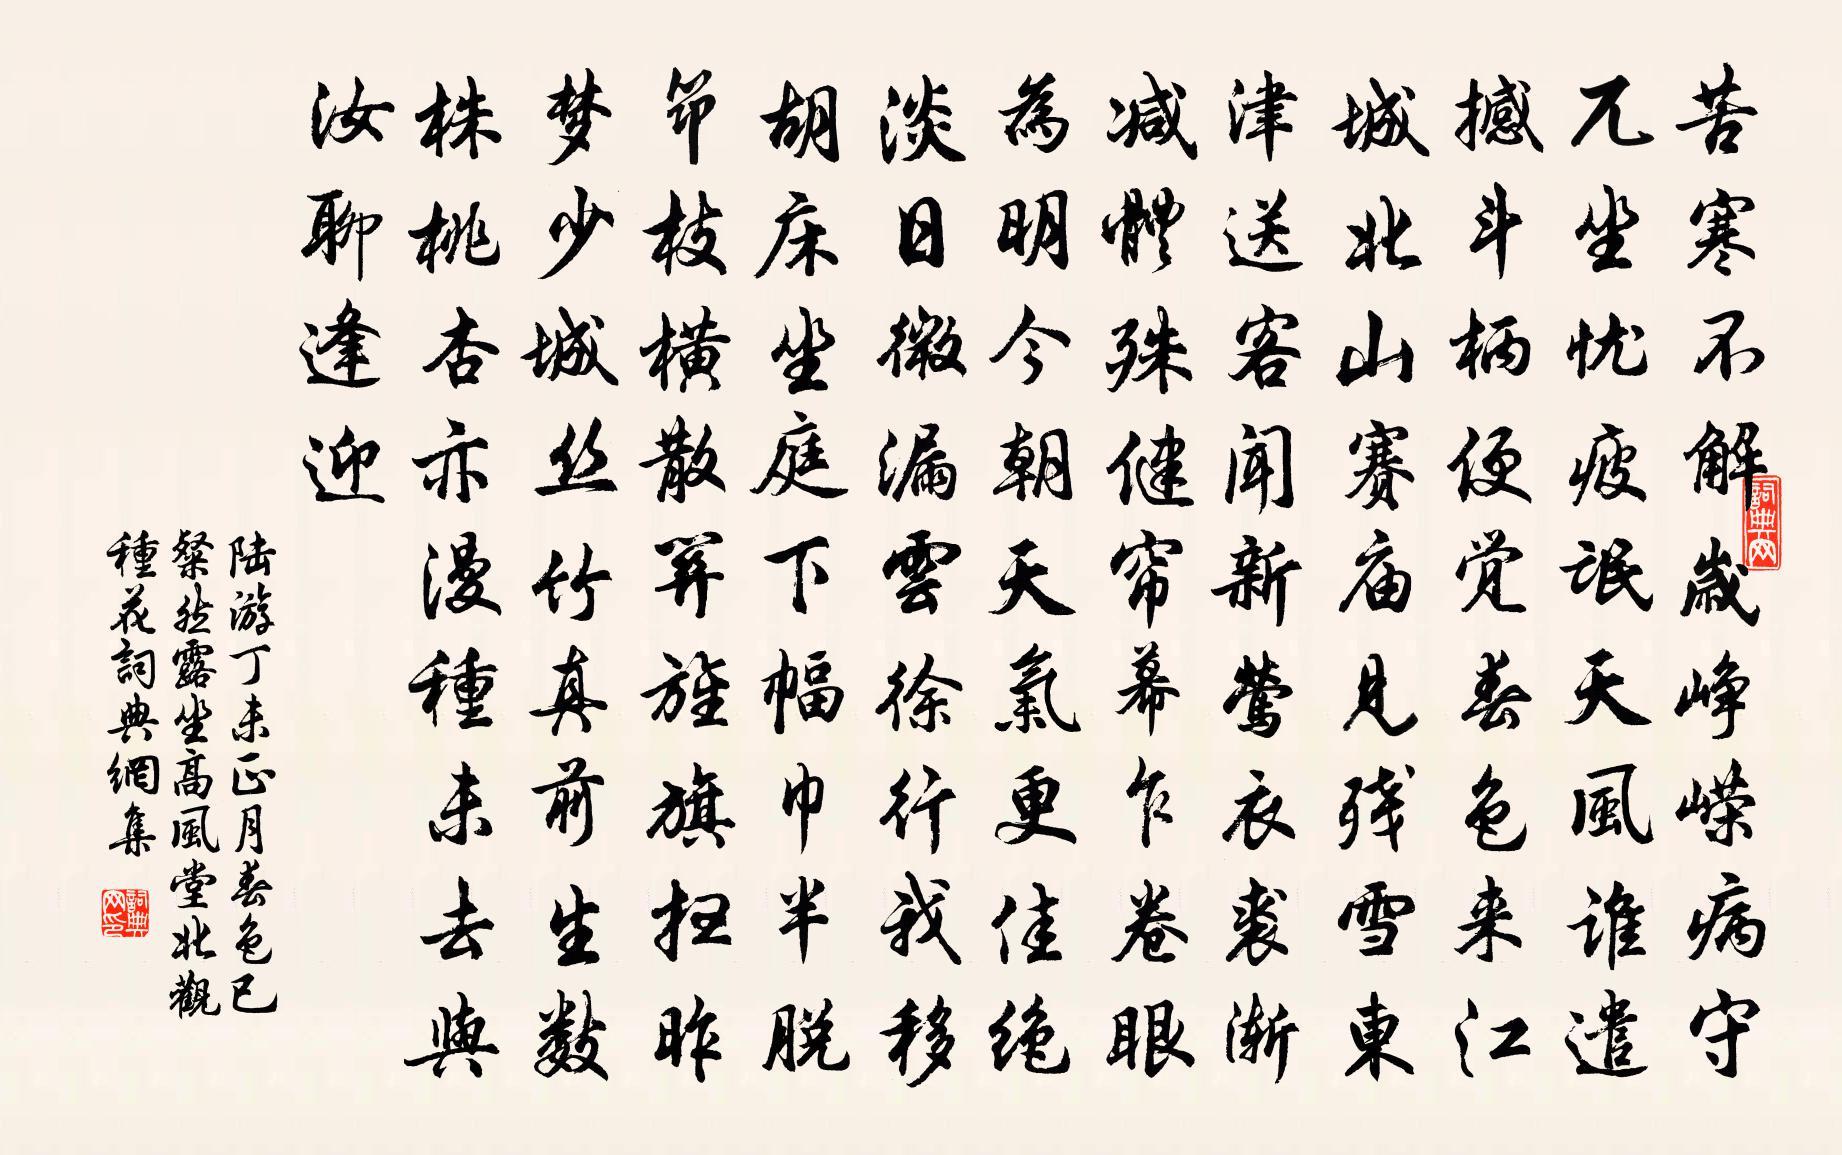 苦寒不解歲峥嵘病守
兀坐忧疲氓天風谁遣
撼斗柄便觉春色来江
城北山赛庙見残雪東
津送客闻新莺衣裘渐
减體殊健帘幕乍卷眼
為明今朝天氣更佳绝
淡日微漏雲徐行我移
胡床坐庭下幅巾半脱
笻枝横散关旌旗扭昨
梦少城丝竹真前生数
株桃杏亦漫種未去與
汝聊逢迎
陆游丁未正月春色已
粲然露坐高風堂北觀
種花詞典網集
詞典网
詞典网